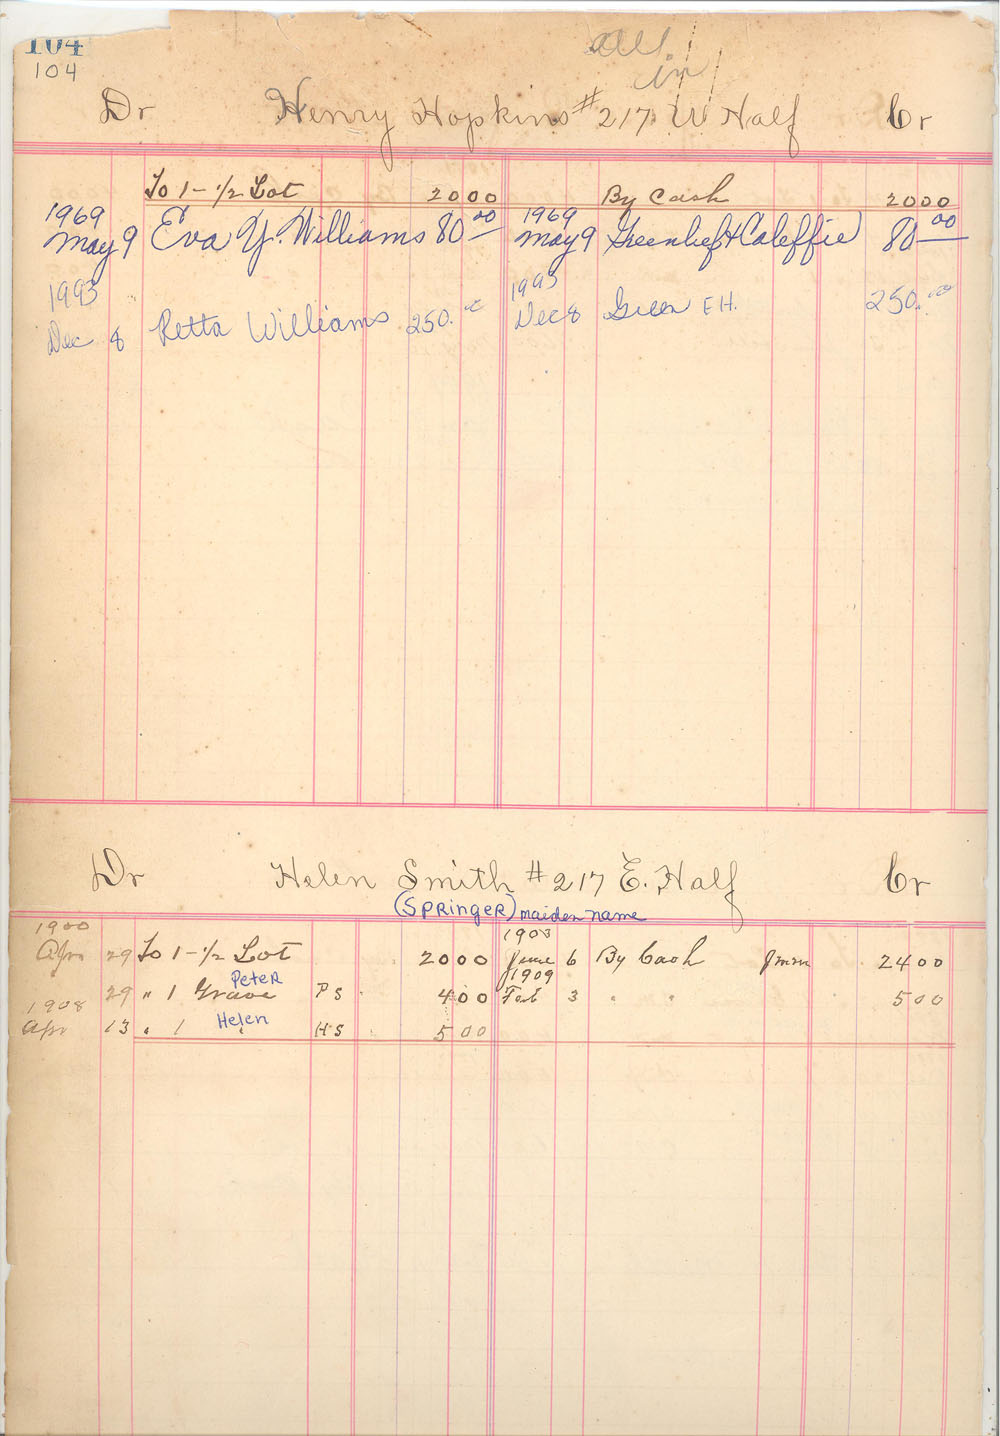 104
104
all
in
Dr Henry Hopkins #217 W Half Cr
To 1-1/2 Lot 2000 By Cash 2000
1969 1969
May 9 Eva Y. Williams 80.00 May 9 80.00
1993 1993
Dec 8 Retta Williams 250.00 Dec 8 Green F.H. 250.00
Dr Helen Smith #217 E. Half Cr
(Springer) maiden name
1900 1903
Apr 29 To 1-1/2 Lot 2000 June 6 By Cash 2400
Peter 1909
29 " 1 Grave PS 400 Feb 3 " " 500
1908 Helen
Apr 13 " 1 " HS 500